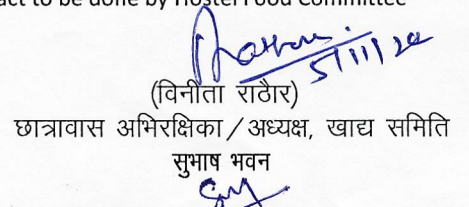 act to be done by Hostel Food Committee
5/11/20
(विनीता राठौर)
छात्रावास अभिरक्षिका / अध्यक्ष, खाद्य समिति
सुभाष भवन